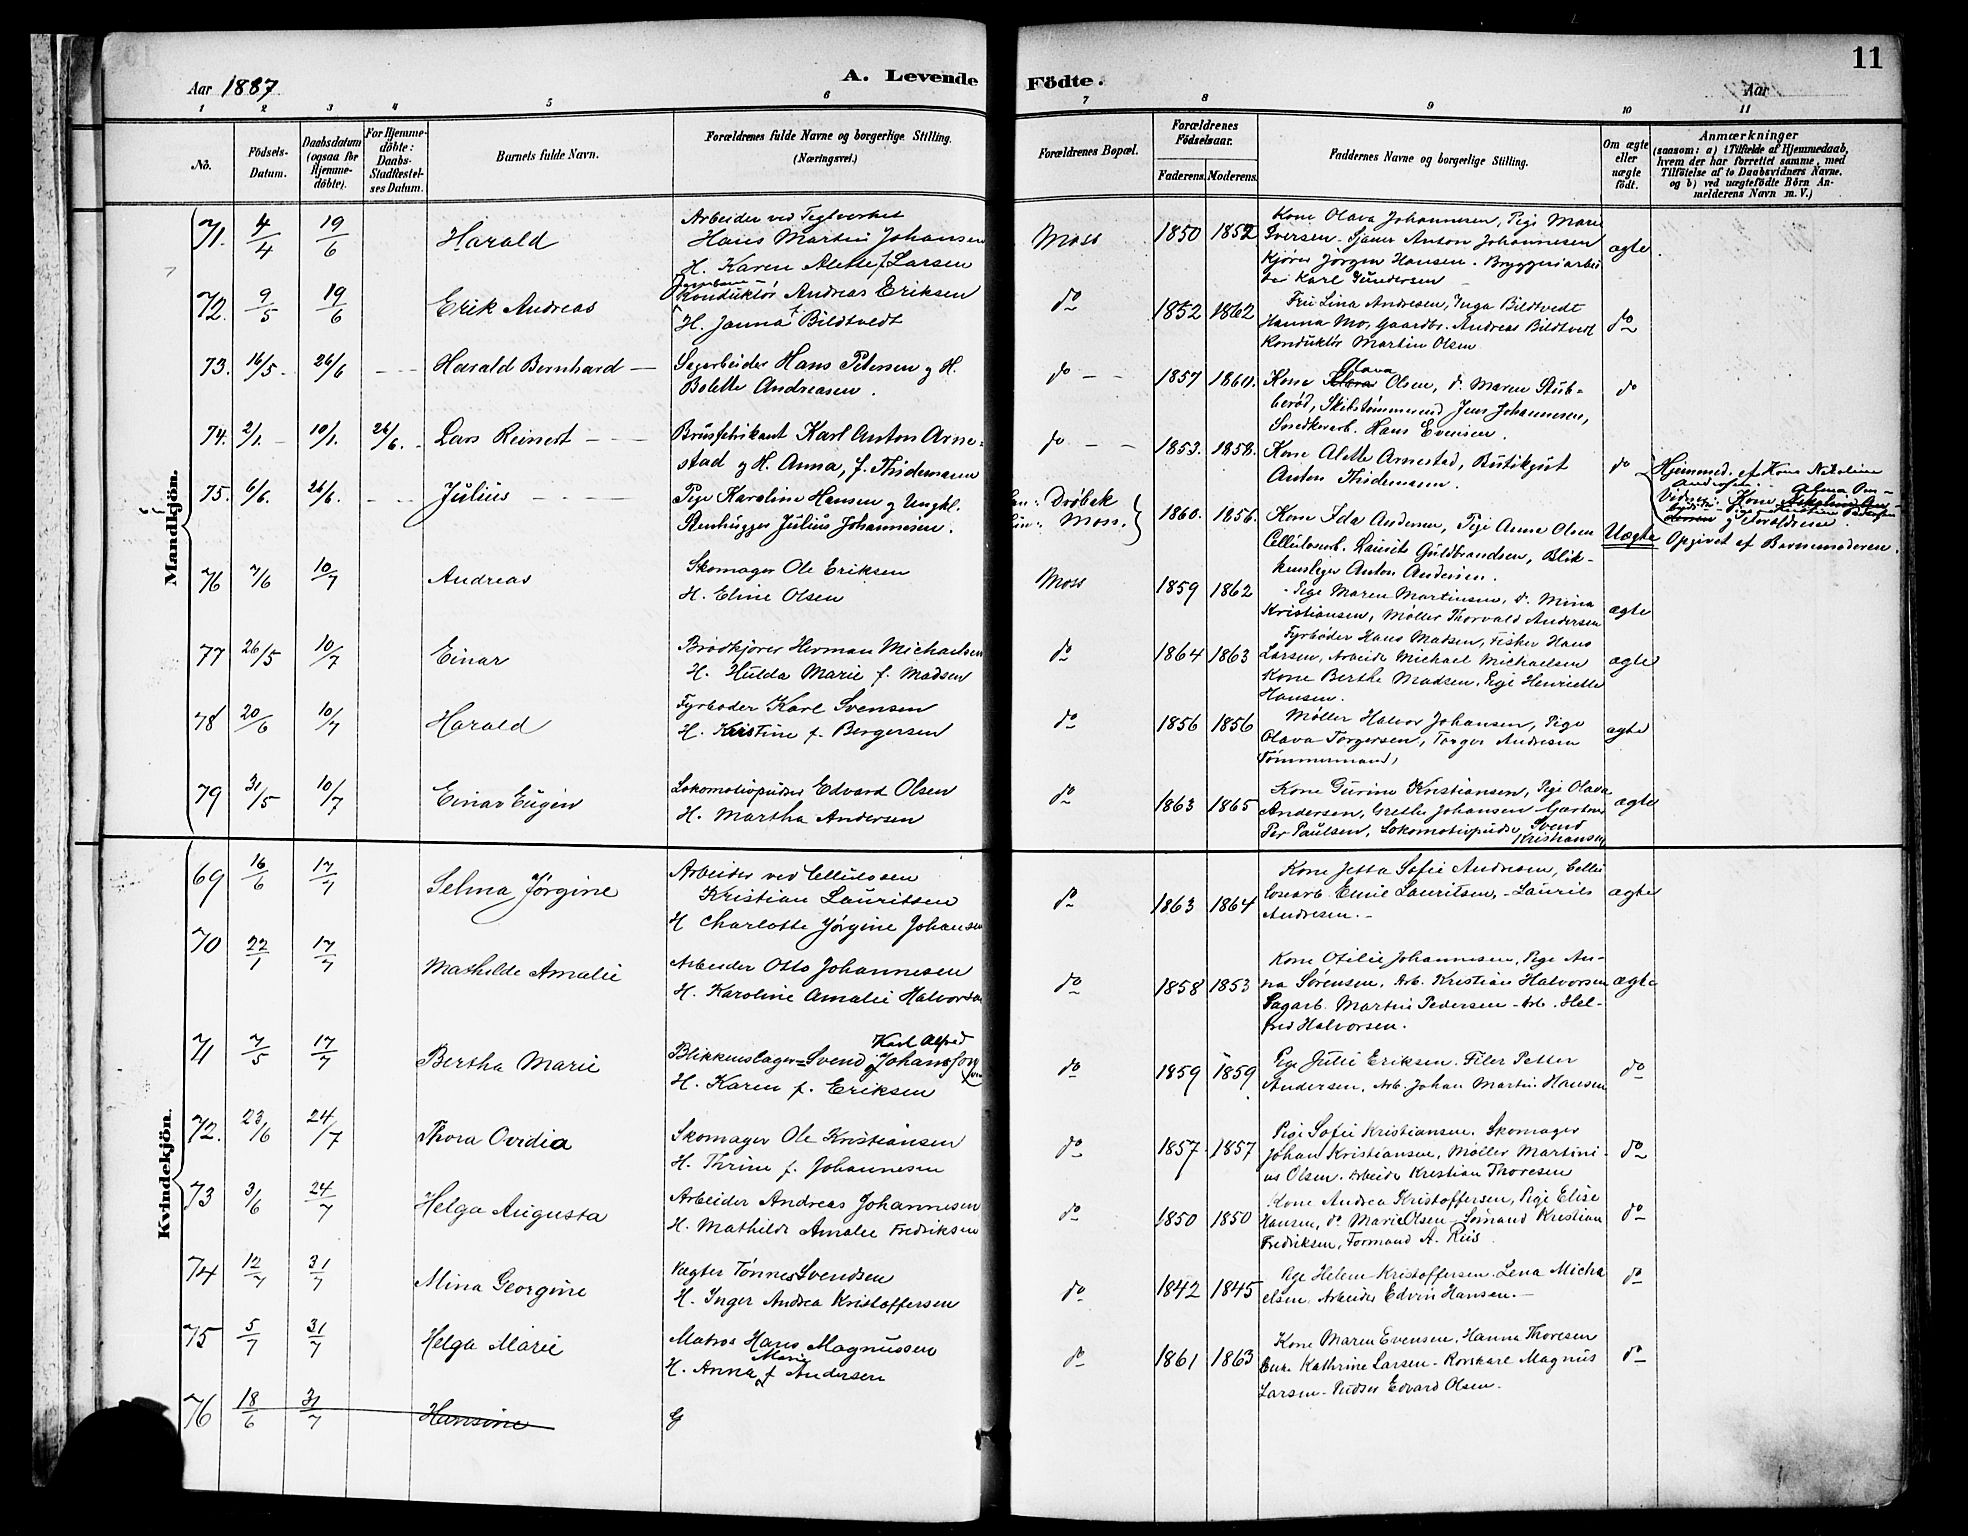 11
Aar 1887
A. Levende Födte.
Aar
1 2 3 4 5 6 7 8 9 10 11
No.
Födsels-Datum.
Daabsdatum (ogsaa for Hjemme-döbte).
For Hjemme-döbte: Daabs-Stadfæstel-ses Datum.
Barnets fulde Navn.
Forældrenes fulde Navne og borgerlige Stilling.
(Næringsvei.)
Forældrenes Bopæl.
Forældrenes Födselsaar.
Faderens. Moderens.
Faddernes Navne og borgerlige Stilling.
Om ægte eller uægte födt.
Anmærkninger
(saasom: a) i Tilfælde af Hjemmedaab, hvem der har forrettet samme, med Tilföielse af to Daabsvidners Navne, og b) ved uægtefödte Börn An-melderens Navn m. V.)
Mandkjön.
71. 4/4 19/6 Harald
Arbeider ved Teglverket
Hans Martin Johansen
H. Karen Alette f Larsen
Moss 1850 1852
Kone Olava Johannesen, Pige Marie
Iversen - Sjauer Anton Johannesen
Kjører Jørgen Hansen - Bryggeriarbei
der Karl Gundersen
ægte
72. 9/5 19/6 Erik Andreas
Jernbane-
Konduktör Andreas Eriksen
H. Janna f Bildtvedt
do 1852 1862
Fru Lina Andresen, Inga Bildtvedt
Hanna Mo, Gaardbr. Andreas Bildtvedt
Konduktör Martin Olsen
do
73. 16/5 26/6 Harald Bernhard
Sagarbeider Hans Petersen og H.
Bolette Andreasen.
do 1857 1860.
Olava
Kone Olsen, do. Maren Stub-
berød, Skibstømmermd Jens Johannesen,
Snedkerarb. Hans Evensen.
do
74. 2/1. 10/1. 26/6. Lars Reinert
Brusfabrikant Karl Anton Arne-
stad og H. Anna, f. Thidemann
do 1853. 1858.
Kone Alette Arnestad, Butikgut
Anton Thidemann.
do
Hjemmed. af Kone Nikoline
Andersen.
Vidner: Kone
75. 6/6. 26/6. Julius
Pige Karoline Hansen og Ungkl.
Stenhugger Julius Johannesen.
Drøbak
Moss. 1860. 1856.
Kone Ida Andersen, Pige Anna Olsen
Cellulosearb. Lauritz Guldbrandsen, Blik-
kenslager Anton Andersen.
Uægte
Opgivet af Barnemoderen.
76 7/6 10/7 Andreas
Skomager Ole Eriksen
H. Eline Olsen
Moss 1859 1862
Pige Maren Martinsen, do. Mina
Kristiansen, Møller Thorvald Andersen
ægte
77 26/5 10/7 Einar
Brødkjører Herman Michaelsen
H. Hulda Marie f. Madsen
do 1864 1863
Fyrbøder Hans Madsen, Fisker Hans
Larsen, Arbeider Michael Michaelsen
Kone Berthe Madsen. Pige Henriette
Hansen.
ægte
78 20/6 10/7 Harald
Fyrbøder Karl Svensen
H. Kristine f. Bergersen
do 1856 1856
Møller Halvor Johansen, Pige
Olava Torgersen, Torger Andresen
Tømmermand,
ægte
79 31/5 10/7 Einar Eugen
Lokomotivpudser Edvard Olsen
H. Martha Andersen
do 1863 1865
Kone Gurine Kristiansen, Pige Olava
Andersen, Grethe Johansen Gartner
Per Paulsen, Lokomotivpudser Svend
Kristiansen
ægte
Kvindekjön.
69 16/6 17/7 Selma Jørgine
Arbeider ved Cellulosen
Kristian Lauritsen
H Charlotte Jørgine Johansen
do 1863 1864
Kone Jetta Sofie Andresen, Cellu
losearb. Emil Lauritsen, - Laurits
Andresen. -
ægte
70 22/1 17/7 Mathilde Amalie
Arbeider Otto Johannesen
H. Karoline Amalie Halvorsen
do 1858 1853
Kone Otilie Johannesen, Pige An-
na Sørensen, Arb. Kristian Halvorsen
Sagarb. Martin Pedersen - Arb. Hel-
fred Halvorsen.
ægte
71 7/5 17/7 Bertha Marie
Karl Alfred
Blikkenslager-Svend Johansson
H. Karen f. Eriksen
do 1859 1859
Pige Julie Eriksen. Filer Petter
Andersen, Arb. Johan Martin Hansen
do
72. 23/6 24/7 Thora Ovidia
Skomager Ole Kristiansen
H. Thrine f. Johannesen
do 1857 1857
Pige Sofie Kristiansen. Skomager
Johan Kristiansen, Møller Martini-
us Olsen. Arbeider Kristian Thoresen
do
73 3/6 24/7 Helga Augusta
Arbeider Andreas Johannesen
H. Mathilde Amalie Fredriksen
do 1850 1850
Kone Andrea Kristoffersen, Pige Elise
Hansen, do. Marie Olsen - Sømand Kristian
Fredriksen, Formand A. Riis
do
74 12/7 31/7 Mina Georgine
Vægter Tønnes Svendsen
H. Inger Andrea Kristoffersen
do 1842 1845
Pige Helene Kristoffersen. Lena Micha
elsen, Arbeider Edvin Hansen. -
do
75 5/7 31/7 Helga Marie
Matros Hans Magnussen
Marie
H. Anna f Andersen
do 1861 1863
Kone Maren Evensen, Hanna Thoresen
Enke Kathrine Larsen - Rorskarl Magnus
Larsen - Pudser Edvard Olsen.
do
76 18/6 31/7 Hansine
G